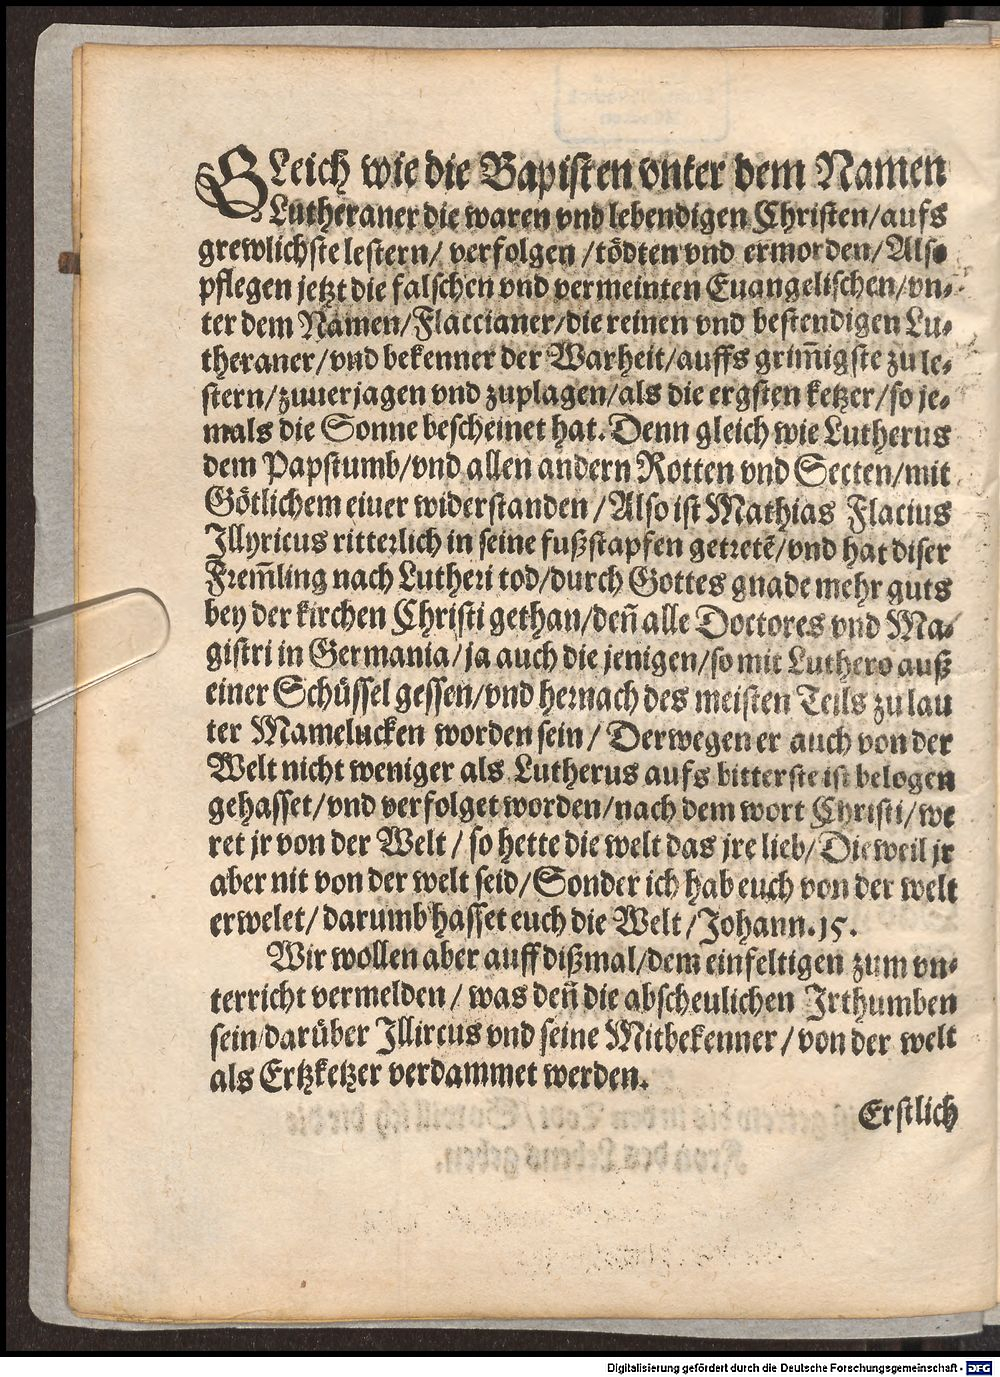 GLeich wie die Bapisten vnter dem Namen
Lutheraner die waren vnd lebendigen Christen/aufs
grewlichste lestern/ verfolgen /tödten vnd ermorden/Also
pflegen jetzt die falschen vnd vermeinten Euangelischen/vn-
ter dem Namen/Flaccianer/die reinen vnd bestendigen Lu-
theraner/vnd bekenner der Warheit/auffs grim̄igste zu le-
stern/zuuerjagen vnd zuplagen/als die ergsten ketzer/so je-
mals die Sonne bescheinet hat. Denn gleich wie Lutherus
dem Papstumb/vnd allen andern Rotten vnd Secten/mit
Götlichem eiuer widerstanden /Also ist Mathias Flacius
Jllyricus ritterlich in seine fußstapfen getretē/vnd hat diser
Frem̄ling nach Lutheri tod/durch Gottes gnade mehr guts
bey der kirchen Christi gethan/den̄ alle Doctores vnd Ma-
gistri in Germania/ja auch die jenigen/so mit Luthero auß
einer Schüssel gessen/vnd hernach des meisten Teils zu lau
ter Mamelucken worden sein/ Derwegen er auch von der
Welt nicht weniger als Lutherus aufs bitterste ist belogen
gehasset/vnd verfolget worden/nach dem wort Christi/we
ret jr von der Welt / so hette die welt das jre lieb/Die weil jr
aber nit von der welt seid/Sonder ich hab euch von der welt
erwelet/ darumb hasset euch die Welt/Johann.15.
Wir wollen aber auff dißmal/dem einfeltigen zum vn-
terricht vermelden / was den̄ die abscheulichen Jrthumben
sein/darüber Jllircus vnd seine Mitbekenner / von der welt
als Ertzketzer verdammet werden.
Erstlich
Digitalisierung gefördert durch die Deutsche Forschungsgemeinschaft - DFG